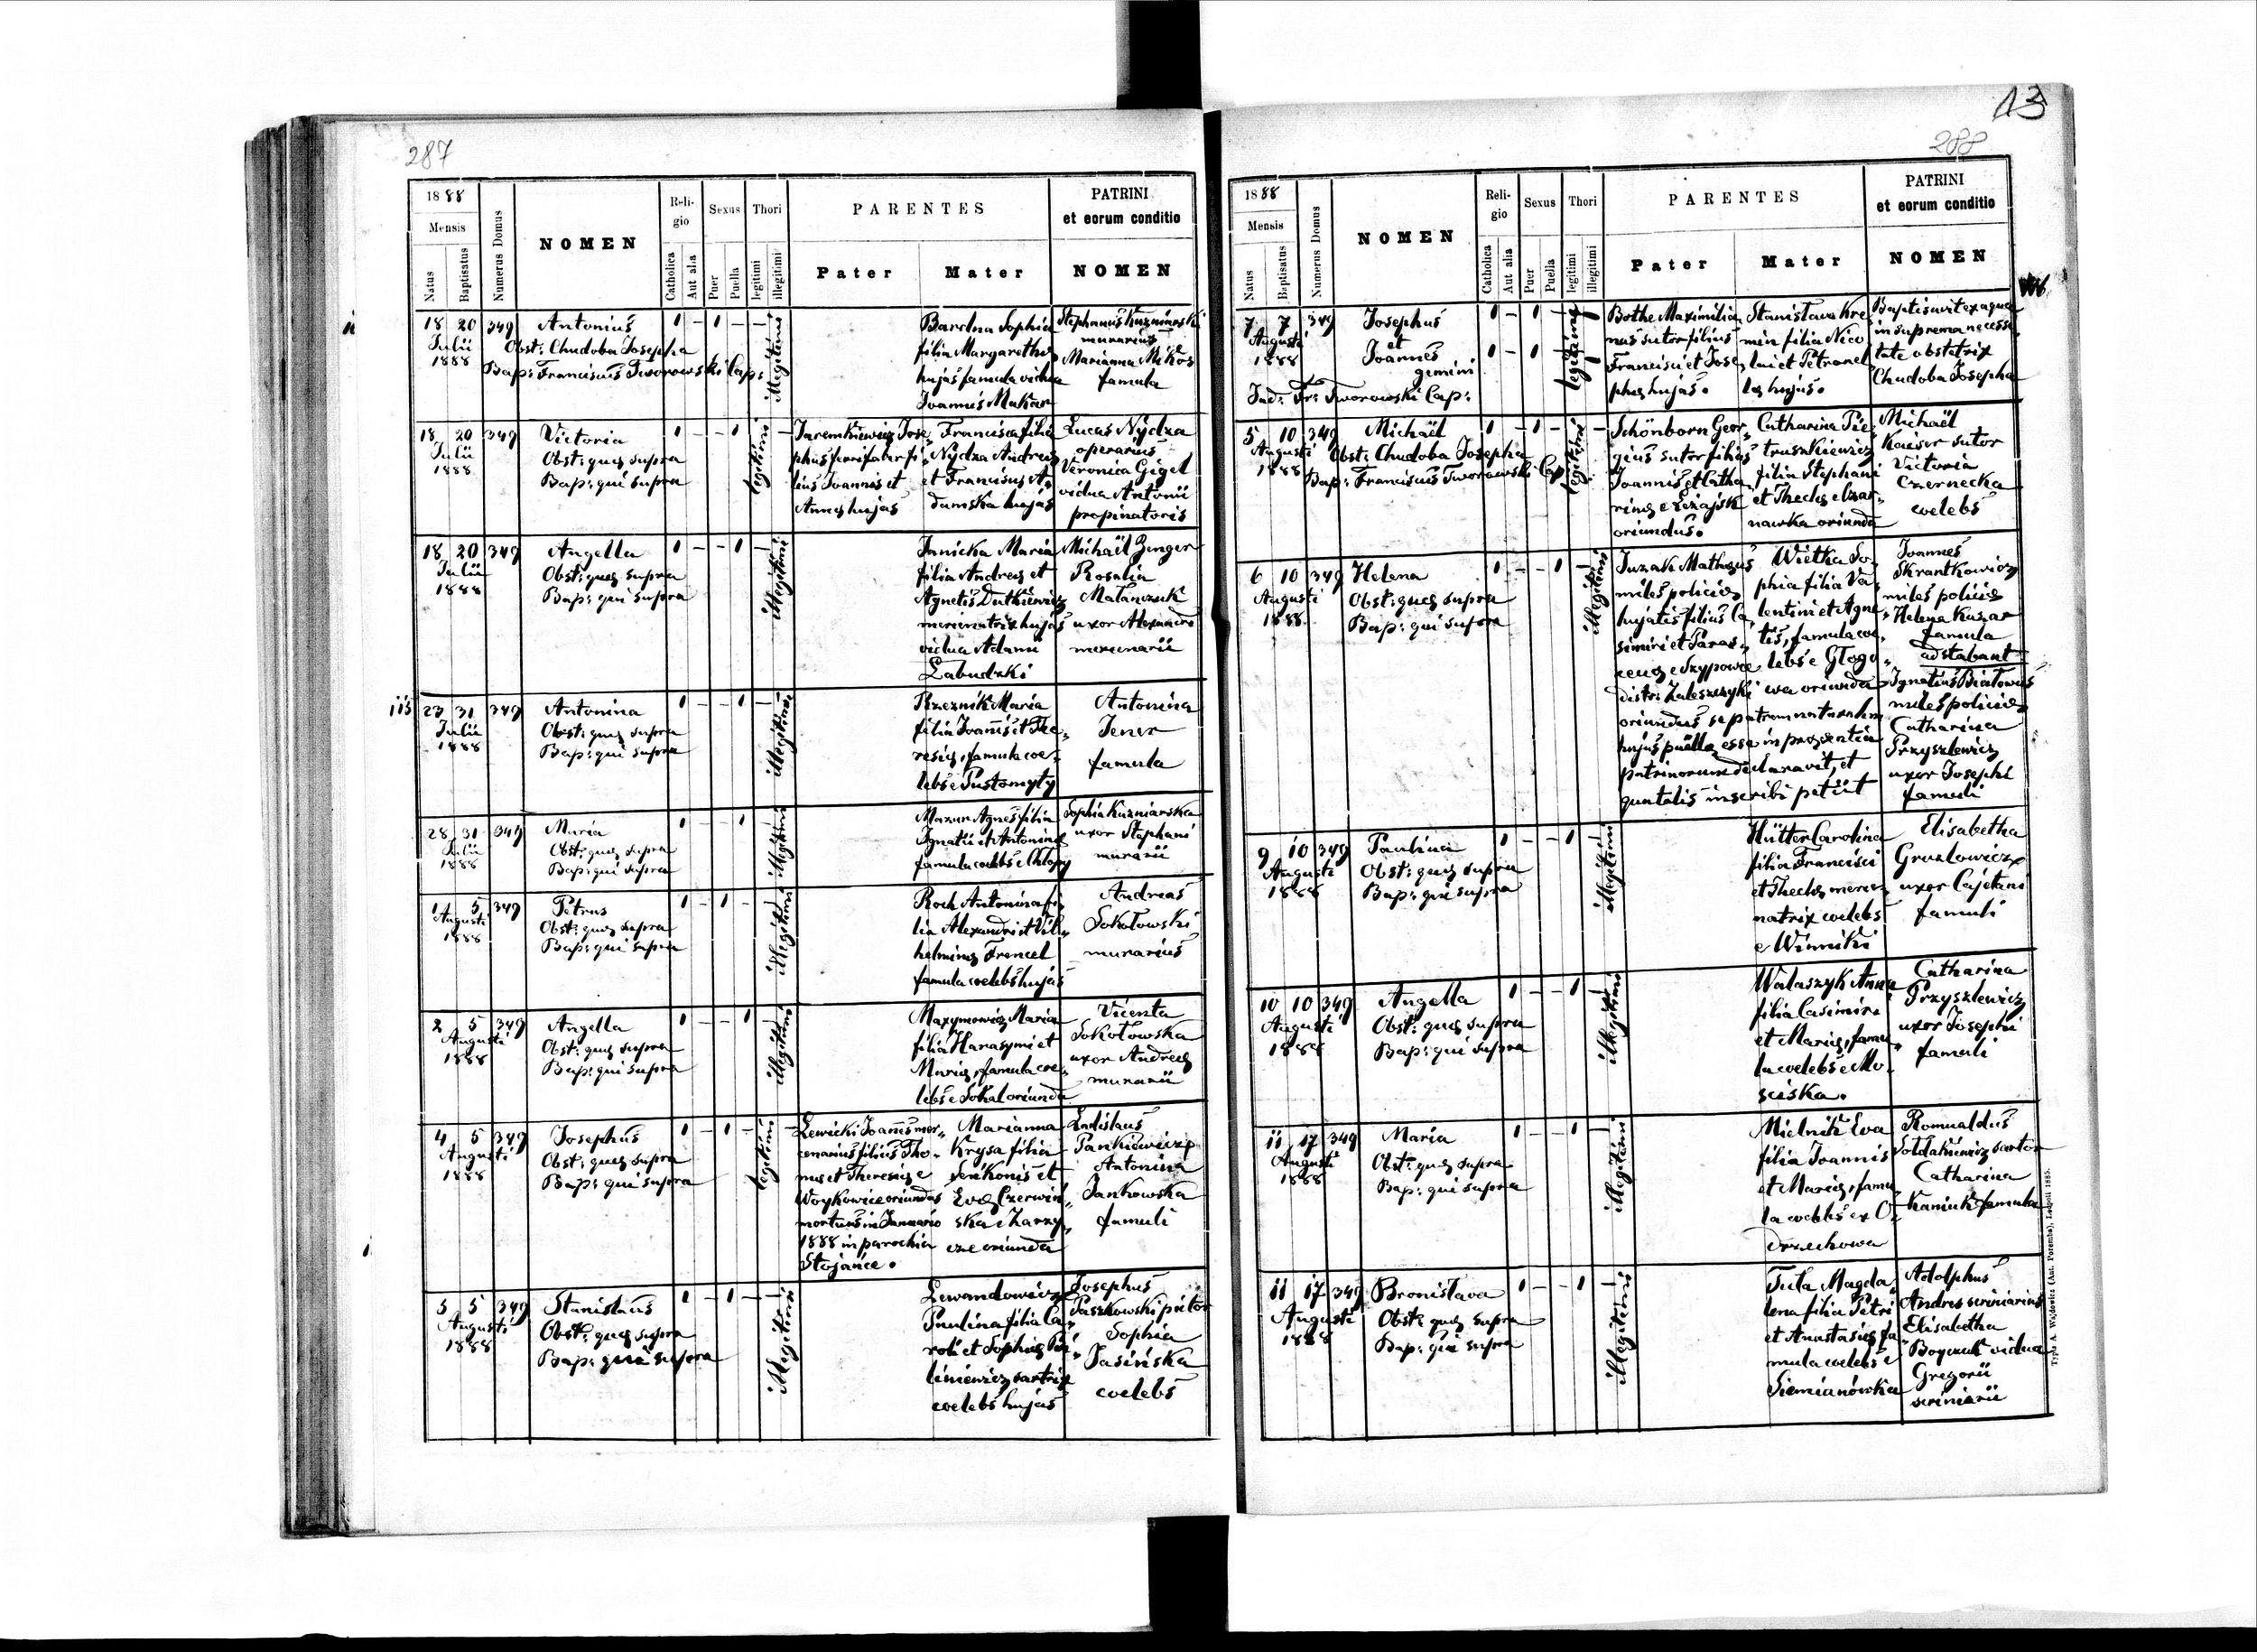 287
1888
Mensis
Natus
Baptisatus
Numerus Domus
NOMEN
Religio
Catholica
Aut alia
Sexus
Puer
Puella
Thori
legitimi
illegitimi
PARENTES
Pater
Mater
PATRINI
et eorum conditio
NOMEN
18 20 349
Julii
1888
Antonius
Obst: Chudoba Josepha
Bap: Franciscus Tworowski Cap:
1 - 1 - -
illegitimi
Sophia
filia Margarethæ
hujas famula vidua
Joannis Makar
Stephanus Kuzniarski
murarius
Marianna Mikos
famula
18 20 349
Julii
1888
Victoria
Obst: quæ supra
Bap: qui supra
1 - - 1
legitimi
-
Jaremkiewicz Jose„
phus ferrifaber fi„
lius Joannis et
Annæ hujas
Francisca filia
Nydza Andreæ
et Franciscæ A„
damska hujas
Lucas Nydza
operarius
Veronica Gigel
vidua Antonii
propinatoris
18 20 349
Julii
1888
Angella
Obst: quæ supra
Bap: qui supra
1 - - 1 -
illegitimi
Janicka Maria
filia Andreæ et
Agnetis Dutkiewicz
mercenatrix hujas
vidua Adami
Labudzki
Michaël Zenger
Rosalia
Malanczuk
uxor Alexandri
mercenarii
23 31 349
Julii
1888
Antonina
Obst: quæ supra
Bap: qui supra
1 - - 1 -
illegitimi
Rzeznik Maria
filia Joannis et The„
resiæ, famula coe„
lebs e Pustomyty
Antonina
Jener
famula
28 31 349
Julii
1888
Maria
Obst: quæ supra
Bap: qui supra
1 - - 1 -
illegitimi
Mazur Agnes filia
Ignatii et Antoninæ
famula coelebs e Chlopy
Sophia Kuzniarska
uxor Stephani
murarii
1 5 349
Augusti
1888
Petrus
Obst: quæ supra
Bap: qui supra
1 - 1 - -
illegitimi
Roch Antonina fi„
lia Alexandri et Vil„
helminæ Frencel
famula coelebs hujas
Andreas
Sokołowski
murarius
2 5 349
Augusti
1888
Angella
Obst: quæ supra
Bap: qui supra
1 - - 1 -
illegitimi
Maxymowicz Maria
filia Harasymi et
Mariæ, famula coe„
lebs e Sokal oriunda
Vicenta
Sokołowska
uxor Andreæ
murarii
4 5 349
Augusti
1888
Josephus
Obst: quæ supra
Bap: qui supra
1 - 1 -
legitimi
-
Lewicki Joannes mer„
cenarius filius Tho„
mæ et Theresiæ e
Woykowice oriundus
mortuus in Januario
1888 in parochia
Stojańce.
Marianna
Krysa filia
Senkonis et
Evæ Czerwin„
ska e Zarzy„
cze oriunda
Ladislaus
Pankiewicz
Antonina
Jankowska
famuli
5 5 349
Augusti
1888
Stanislaus
Obst: quæ supra
Bap: qui supra
1 - 1 - -
illegitimi
Lewandowicz
Paulina filia Ca„
roli et Sophiæ
coelebs hujas
Josephus
Paszkowski pictor
Sophia
Jasińska
coelebs
13
288
1888
Mensis
Natus
Baptisatus
Numerus Domus
NOMEN
Religio
Catholica
Aut alia
Sexus
Puer
Puella
Thori
legitimi
illegitimi
PARENTES
Pater
Mater
PATRINI
et eorum conditio
NOMEN
7 7 349
Augusti
1888
Josephus
et
Joannes
gemini
Fr: Tworowski Cap:
1 - 1 -
1 - 1 -
legitimi
Bothe Maximilia„
nus sutor filius
Francisci et Jose„
phæ hujas.
Stanislava Kre„
min filia Nico„
lai et Petronel„
læ hujas.
Baptisavit ex aqua
in suprema necessi„
tate obstetrix
Chudoba Josepha
5 10 349
Augusti
1888
Michaël
Obst: Chudoba Josepha
Bap: Franciscus Tworowski Cap
1 - 1 -
legitimi
-
Schönborn Geor„
gius sutor filius
Joannis et Catha„
rinæ e Leżajsk
oriundus.
Catharina Pie„
truszkiewicz
filia Stephani
et Theclæ e Czar„
nawka oriunda
Michaël
Kaiser sutor
Victoria
Czernecka
coelebs
6 10 349
Augusti
1888
Helena
Obst: quæ supra
Bap: qui supra
1 - - 1 -
illegitimi
Juzak Mathæus
miles policiæ
hujatis filius Ca„
simiri et Paras„
ceuæ e Szypowce
distr: Zaleszczyki
oriundus se patrem naturalem
hujus puellæ esse in præsentia
patrinorum declaravit, et
qua talis inscribi petiit
Wielka So„
phia filia Va„
lentini et Agne„
tis, famula coe„
lebs e Głogo„
wa oriunda
Joannes
Skrantkowicz
miles policiæ
Helena Kuzar
famula
adstabant
Ignatius Białowus
miles policiæ
Catharina
Przyszlewicz
uxor Josephi
famuli
9 10 349
Augusti
1888
Paulina
Obst: quæ supra
Bap: qui supra
1 - - 1 -
illegitimi
Hütter Carolina
filia Francisci
et Theclæ merce„
natrix coelebs
e Winniki
Elisabetha
Gruzlowicz
uxor Cajetani
famuli
10 10 349
Augusti
1888
Angella
Obst: quæ supra
Bap: qui supra
1 - - 1 -
illegitimi
Walaszyk Anna
filia Casimiri
et Mariæ, famu„
la coelebs e Mo„
sciska.
Catharina
Przyszlewicz
uxor Josephi
famuli
11 17 349
Augusti
1888
Maria
Obst: quæ supra
Bap: qui supra
1 - - 1 -
illegitimi
Mielnik Eva
filia Joannis
et Mariæ, famu„
la coelebs ex O„
drzechowa
Romualdus
Soldatkiewicz sartor
Catharina
Kaniuk famula
11 17 349
Augusti
1888
Bronislava
Obst: quæ supra
Bap: qui supra
1 - - 1 -
illegitimi
Tuta Magda„
lena filia Petri
et Anastasiæ fa„
mula coelebs e
Siemianówka
Adolphus
Andres scriniarius
Elisabetha
Boyczuk vidua
Gregorii
scriniarii
Typis A. Wajdowicz (Ant. Poremba), Leopoli 1885.